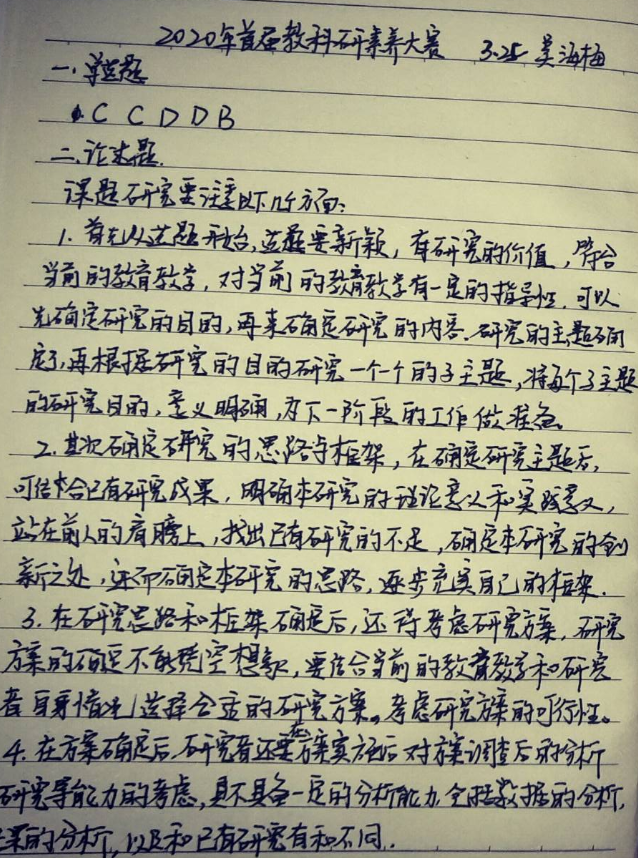 2020年首届教科研素养大赛 3.25 吴海梅
一、单选题
C C D D B
二、论述题.
课题研究要注意以下几个方面:
1. 首先从选题开始,选题要新颖,有研究的价值,符合
当前的教育教学,对当前的教育教学有一定的指导性,可以
先确定研究的目的,再来确定研究的内容.研究的主题确
定了,再根据研究的目的研究一个一个的子主题,将每个子主题
的研究目的,意义明确,为下一阶段的工作做准备。
2.其次确定研究的思路与框架,在确定研究主题后,
可结合已有研究成果,明确本研究的理论意义和实践意义,
站在前人的肩膀上,找出已有研究的不足,确定本研究的创
新之处,进而确定本研究的思路,逐步充实自己的框架.
3.在研究思路和框架确定后,还得考虑研究方案,研究
方案的确定不能凭空想象,要结合当前的教育教学和研究
者自身情况选择合适的研究方案。考虑研究方案的可行性。
4.在方案确定后,研究者还要在方案实施后对方案调查后的分析
研究等能力的考虑,具不具备一定的分析能力,全括数据的分析,
结果的分析,以及和已有研究有和不同.